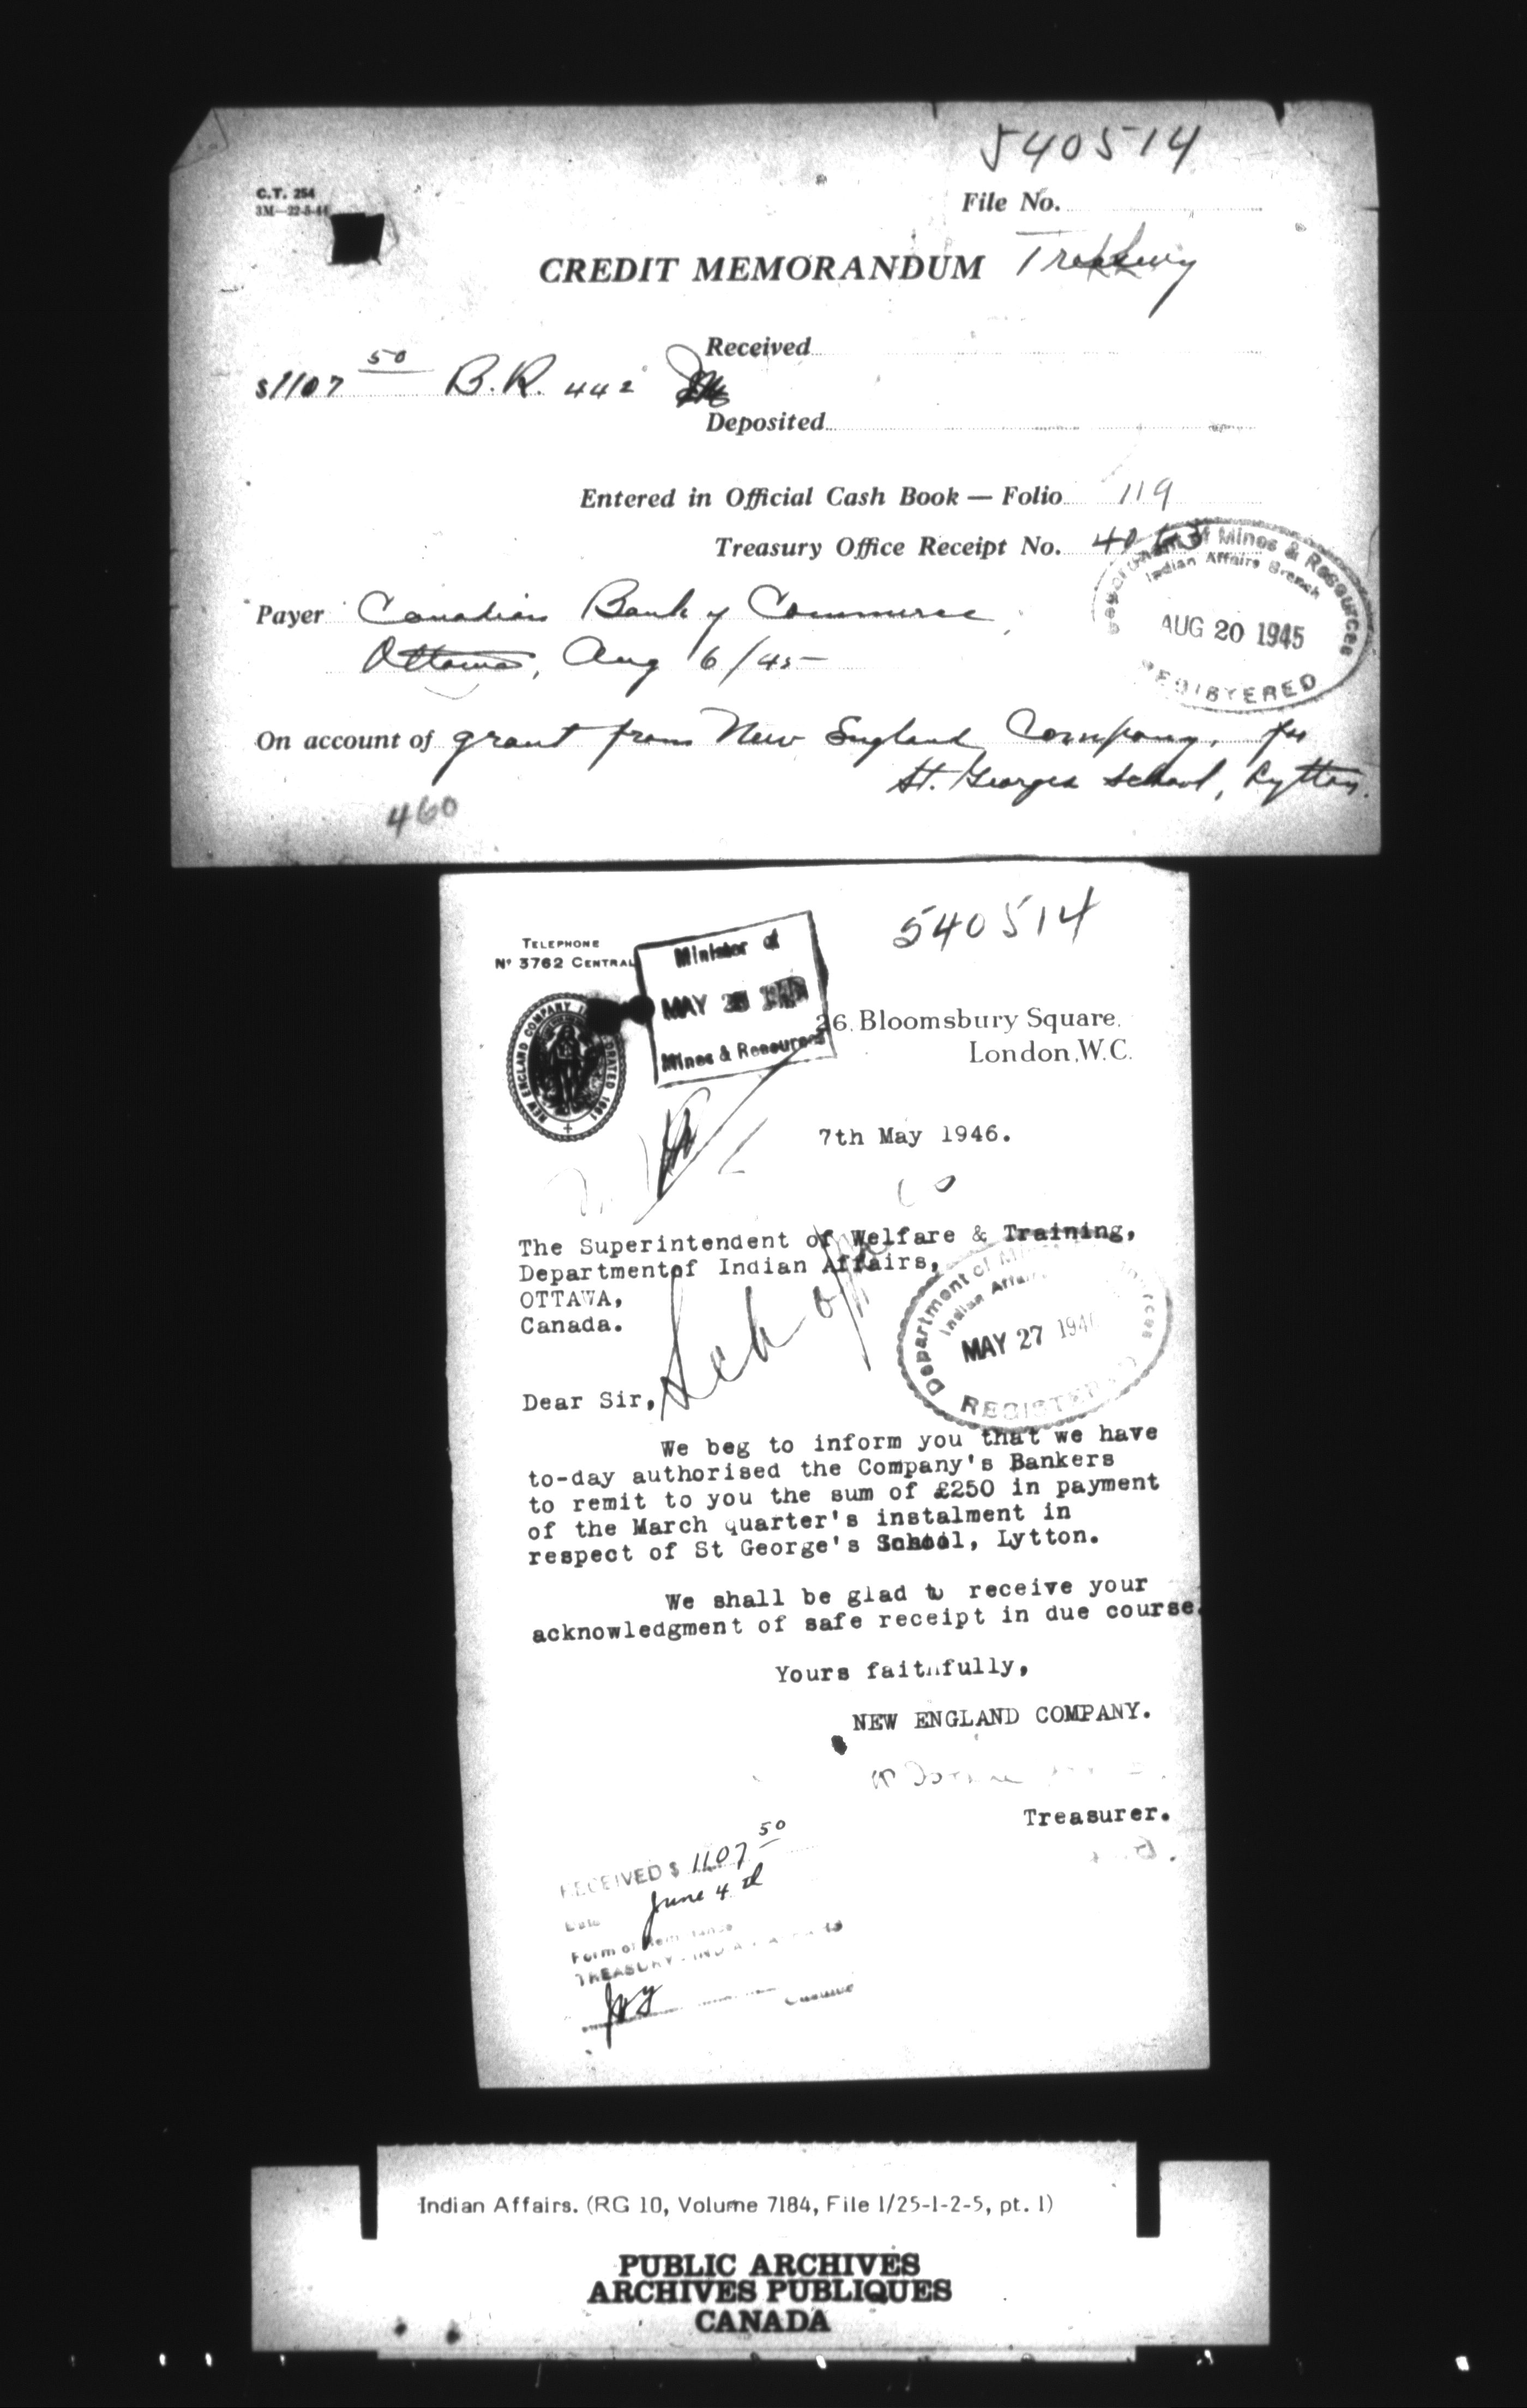 540514
C.T. 254
3M—22-5-44
File No.
CREDIT MEMORANDUM Treasury
Received
$1107 50 B.R. 442
Deposited
Entered in Official Cash Book — Folio 119
Treasury Office Receipt No.
Department of Mines & Resources
Indian Affairs Branch
AUG 20 1945
REGISTERED
Payer Canadian Bank of Commerce
Ottawa, Aug 6/45
On account of grant from New England Company, for
St. Georges School, Lytton.
460
540514
TELEPHONE
Nº 3762 CENTRAL
Minister of
MAY
Mines & Resources
NEW ENGLAND COMPANY INCORPORATED 1661
26, Bloomsbury Square,
London, W.C.
7th May 1946.
The Superintendent of Welfare & Training,
Departmentof Indian Affairs,
OTTAWA,
Canada.
Department of Mines & Resources
Indian Affairs
MAY 27 1946
REGISTERED
Dear Sir,
We beg to inform you that we have
to-day authorised the Company's Bankers
to remit to you the sum of £250 in payment
of the March quarter's instalment in
respect of St George's School, Lytton.
We shall be glad to receive your
acknowledgment of safe receipt in due course.
Yours faithfully,
NEW ENGLAND COMPANY.
Treasurer.
RECEIVED $ 1107 50
Date June 4
Form of Remittance
TREASURY - INDIAN AFFAIRS
Indian Affairs. (RG 10, Volume 7184, File 1/25-1-2-5, pt. 1)
PUBLIC ARCHIVES
ARCHIVES PUBLIQUES
CANADA